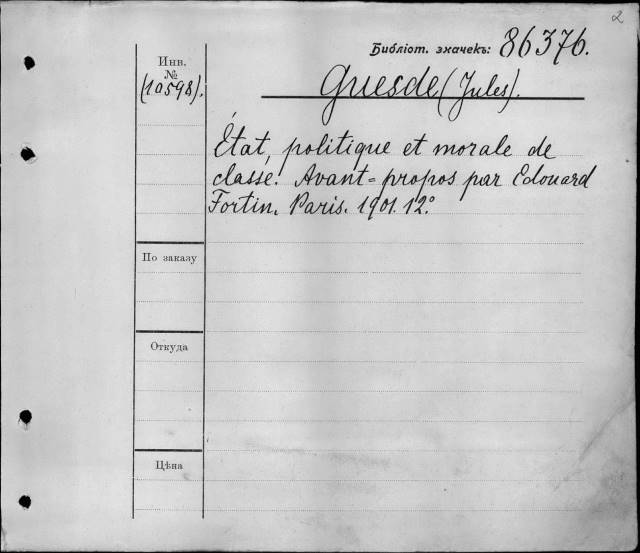 2
Инв.
№
(10598).
Библіот. значекъ: 86376.
Guesde (Jules).
État, politique et morale de
classe. Avant-propos par Edouard
Fortin. Paris. 1901. 12°
По заказу
Откуда
Цѣна